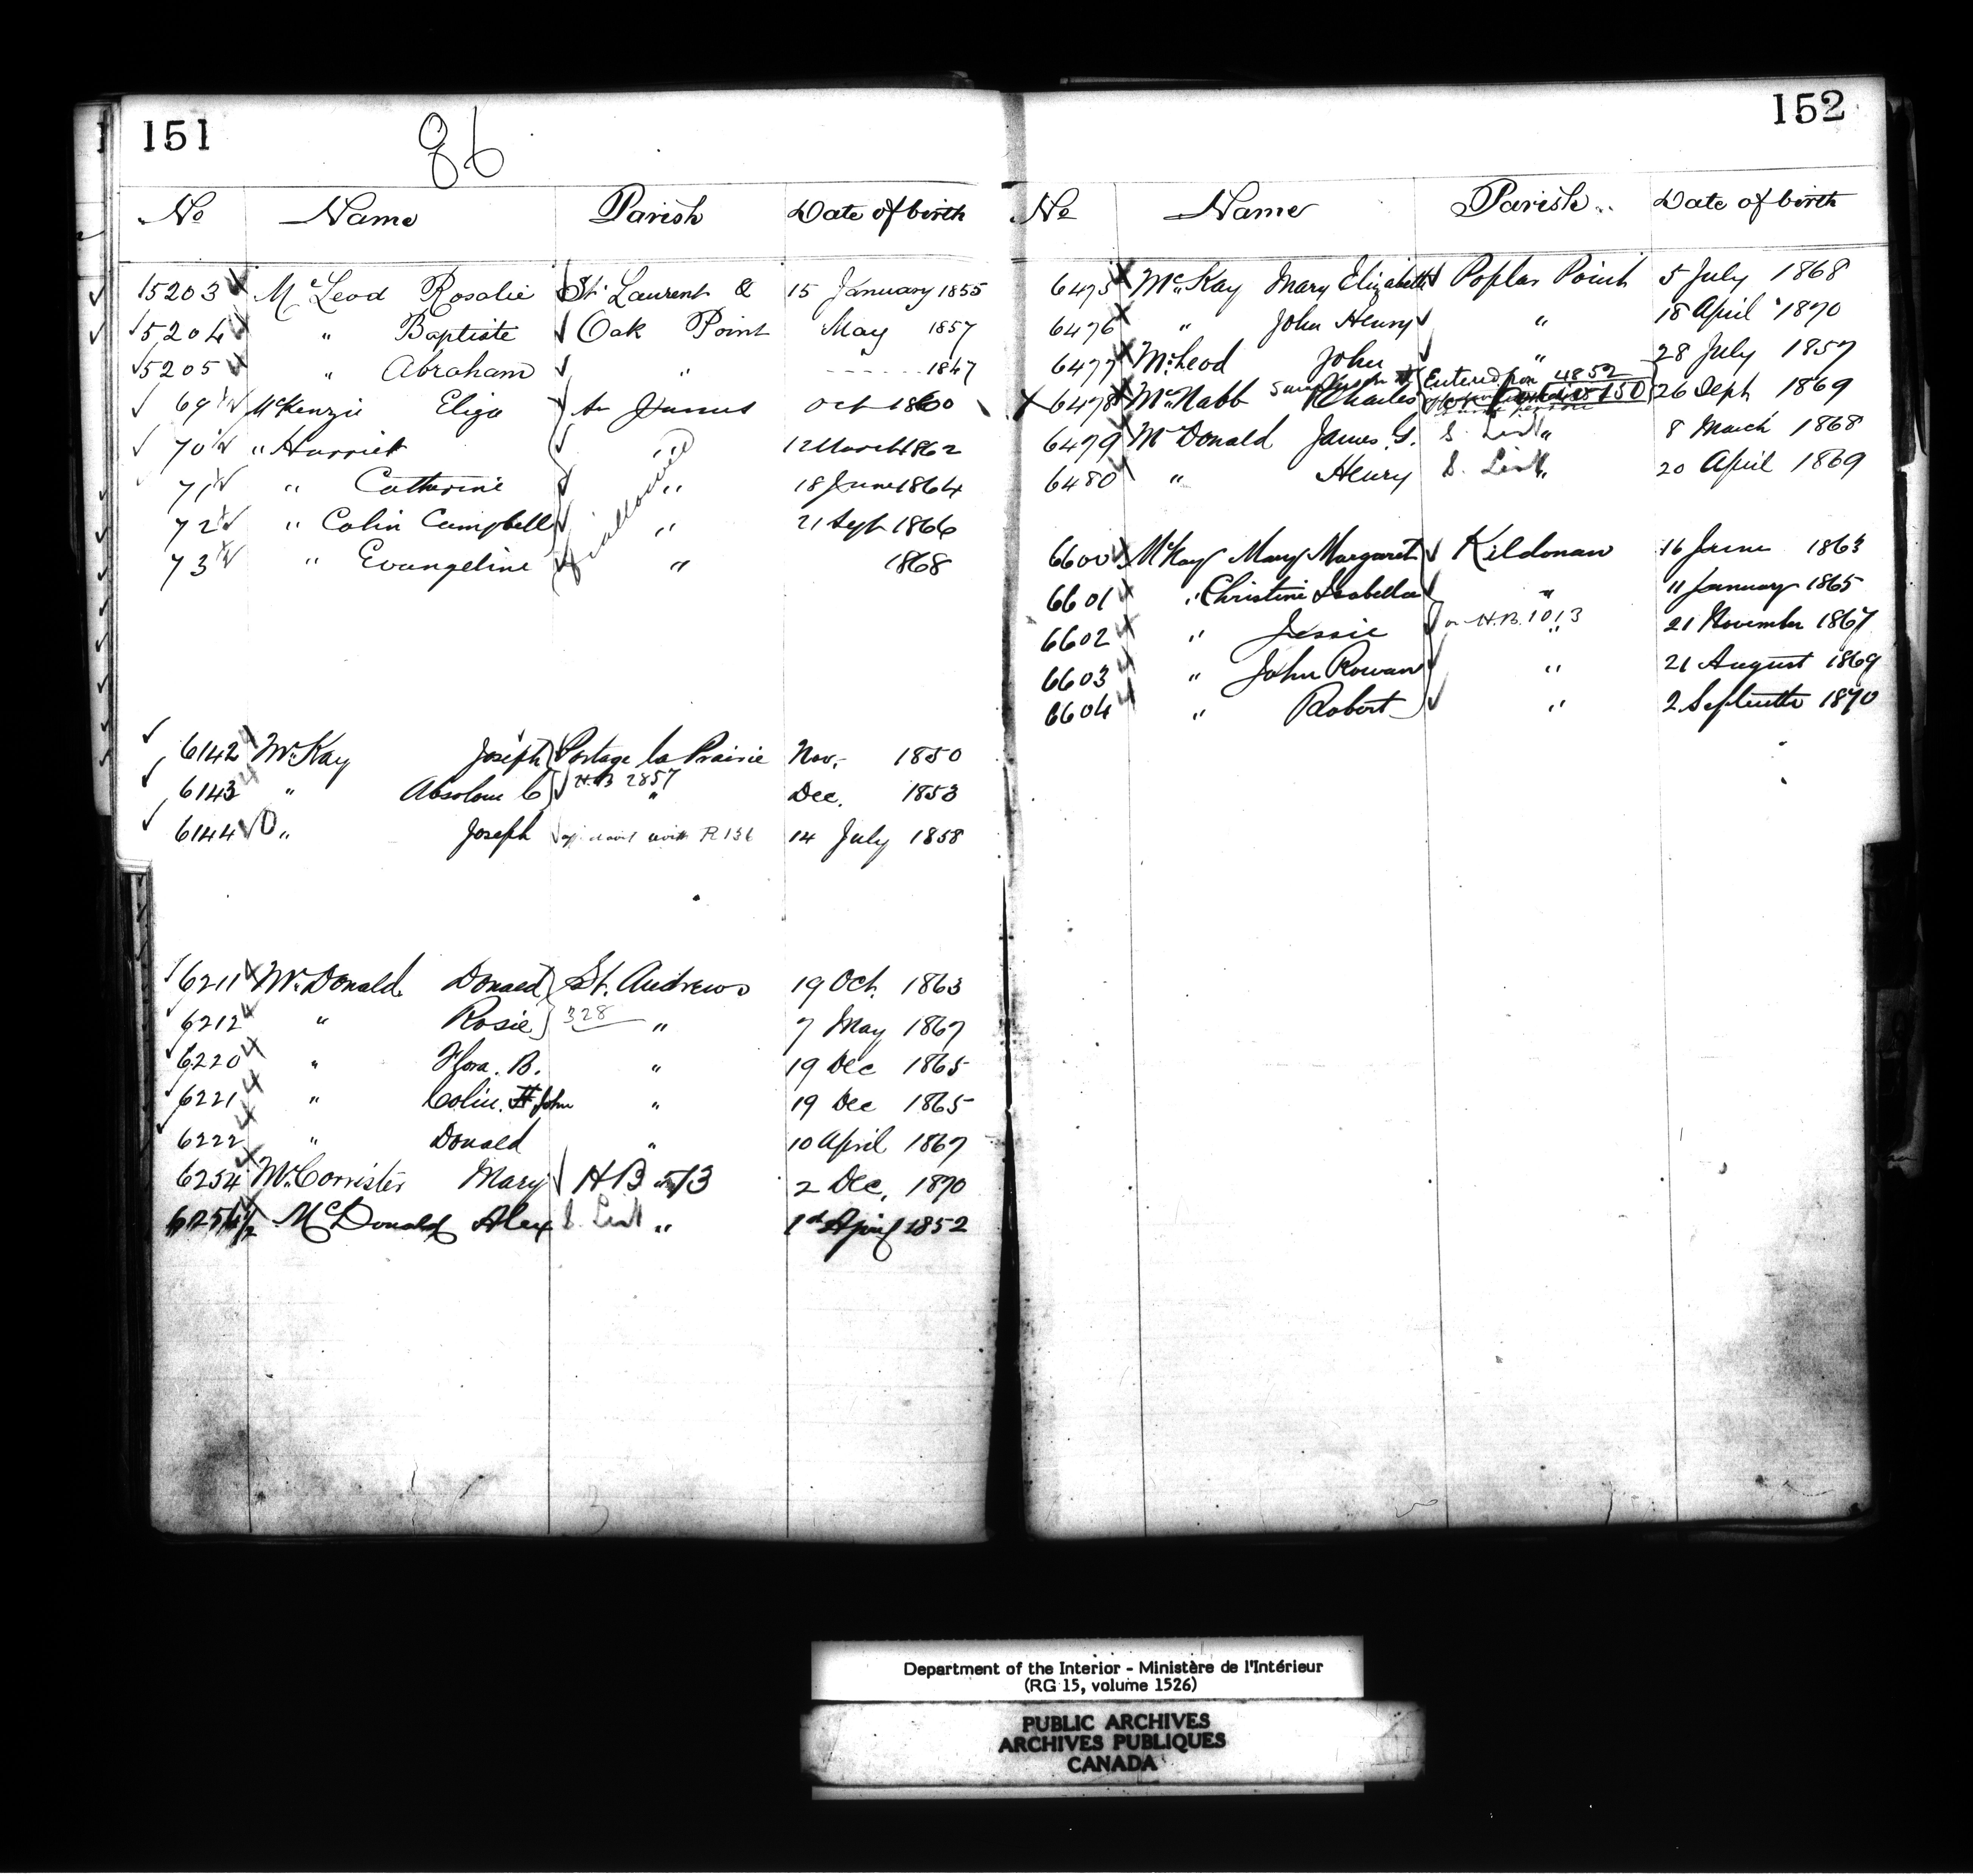 151
86
No Name Parish Date of birth
5203 McLeod Rosalie St. Laurent & 15 January 1855
5204 " Baptiste Oak Point May 1857
5205 " Abraham " 1847
69 McKenzie Eliza St James Oct 1860
70 " Harriet " 12 March 1862
71 " Catherine " 18 June 1864
72 " Colin Campbell " 21 Sept 1866
73 " Evangeline " 1868
disallowed
6142 McKay Joseph Portage la Prairie Nov. 1850
6143 " Absolom C H.B 2857 " Dec. 1853
6144 " Joseph affidavit with R 136 14 July 1858
6211 McDonald Donald St. Andrews 19 Oct. 1863
6212 " Rosie 328 " 7 May 1867
6220 " Flora. B. " 19 Dec 1865
6221 " Colin. John " 19 Dec 1865
6222 " Donald " 10 April 1867
6254 McCorrister Mary HB 513 2 Dec. 1870
6254 1/2 McDonald Alex S. List " 1st April 1852
152
No Name Parish Date of birth
6475 McKay Mary Elizabeth Poplar Point 5 July 1868
6476 " John Henry " 18 April 1870
6477 McLeod John " 28 July 1857
6478 McNabb Charles Entered on 4852 26 Sept 1869
6479 McDonald James. G. S. List " 8 March 1868
6480 " Henry S. List " 20 April 1869
6600 McKay Mary Margaret Kildonan 16 June 1863
6601 " Christine Isabella " 11 January 1865
6602 " Jessie on H.B. 1013 " 21 November 1867
6603 " John Rowan " 21 August 1869
6604 " Robert " 2 Septembr 1870
Department of the Interior - Ministère de l'Intérieur
(RG 15, volume 1526)
PUBLIC ARCHIVES
ARCHIVES PUBLIQUES
CANADA